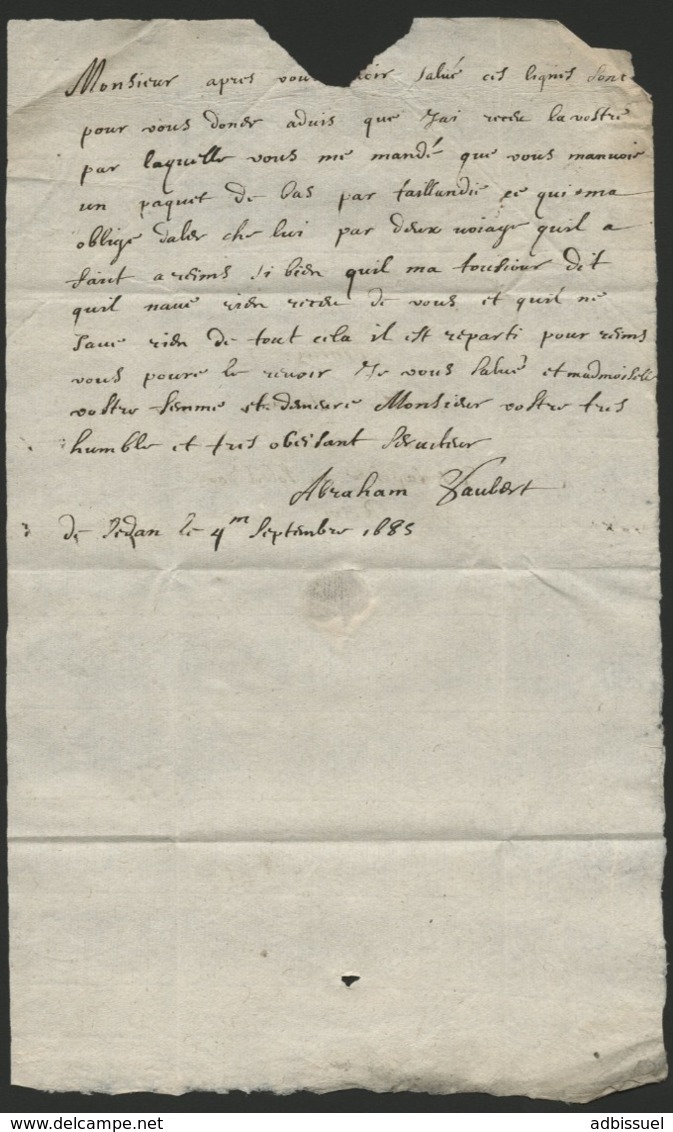 Monsieur apres vous oir salué ces lignes sont
pour vous doner aduis que J'ai receu la vostre
par laquelle vous me mandé que vous manuoie
un paquet de bas par taillandie ce qui ma
oblige daler che lui par deux uoiage quil a
fait a reims si bien quil ma tousiour dit
quil naue rien receu de vous et quil ne
saue rien de tout cela il est reparti pour reims
vous poure le reuoir Je vous salue et madmoiselle
vostre femme et demeure Monsieur vostre tres
humble et tres obeisant seruiteur
Abraham Vaubert
de Sedan le 4m septembre 1685
adbissuel